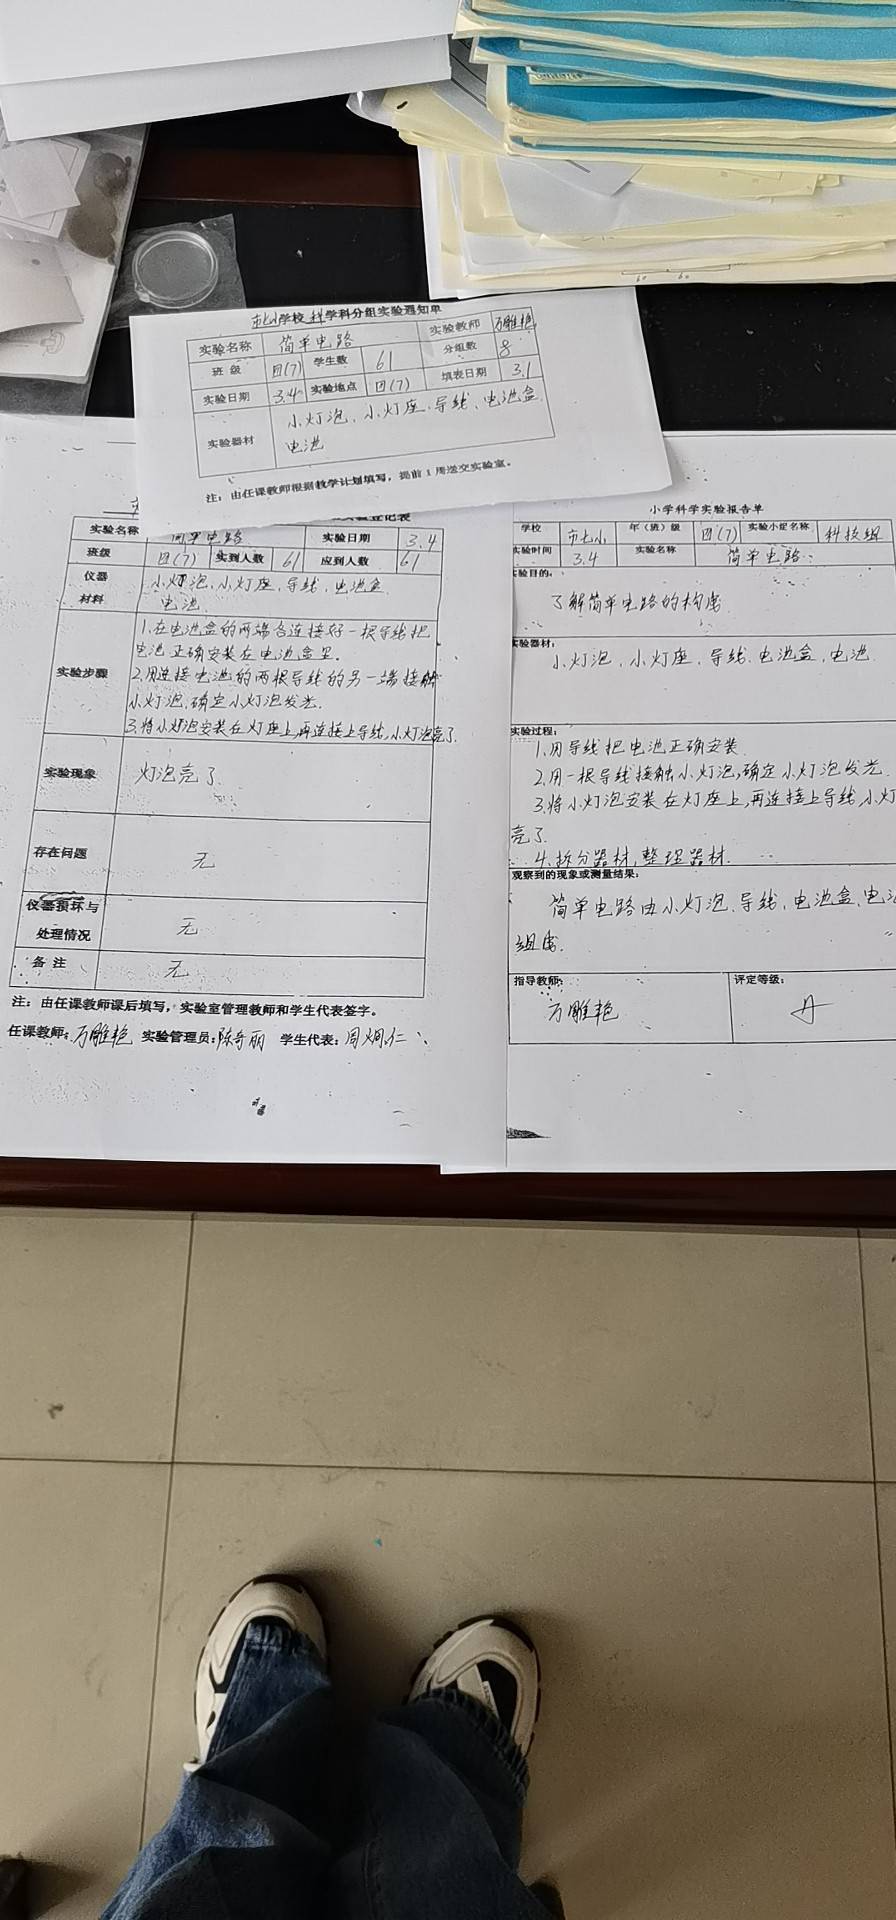 市七小学校 科学科分组实验通知单
实验名称 简单电路 实验教师 万雕艳
班级 四(7) 学生数 61 分组数 8
实验日期 3.4 实验地点 四(7) 填表日期 3.1
实验器材 小灯泡、小灯座、导线、电池盒、
电池
注：由任课教师根据教学计划填写，提前1周送交实验室。
实验登记表
实验名称 简单电路 实验日期 3.4
班级 四(7) 实到人数 61 应到人数 61
仪器材料 小灯泡、小灯座、导线、电池盒
电池
实验步骤
1.在电池盒的两端各连接好一根导线把
电池正确安装在电池盒里。
2.用连接电池的两根导线的另一端接触
小灯泡,确定小灯泡发光.
3.将小灯泡安装在灯座上,再连接上导线,小灯泡亮了.
实验现象 灯泡亮了
存在问题 无
仪器损坏与处理情况 无
备注 无
注：由任课教师课后填写，实验室管理教师和学生代表签字。
任课教师：万雕艳 实验管理员：陈奇丽 学生代表：周炯仁
小学科学实验报告单
学校 市七小 年（班）级 四(7) 实验小组名称 科技组
实验时间 3.4 实验名称 简单电路
实验目的：
了解简单电路的构成
实验器材：
小灯泡、小灯座、导线、电池盒、电池
实验过程：
1.用导线把电池正确安装
2.用一根导线接触小灯泡,确定小灯泡发光.
3.将小灯泡安装在灯座上,再连接上导线,小灯
亮了.
4.拆分器材,整理器材.
观察到的现象或测量结果：
简单电路由小灯泡、导线、电池盒、电池
组成.
指导教师： 评定等级：
万雕艳